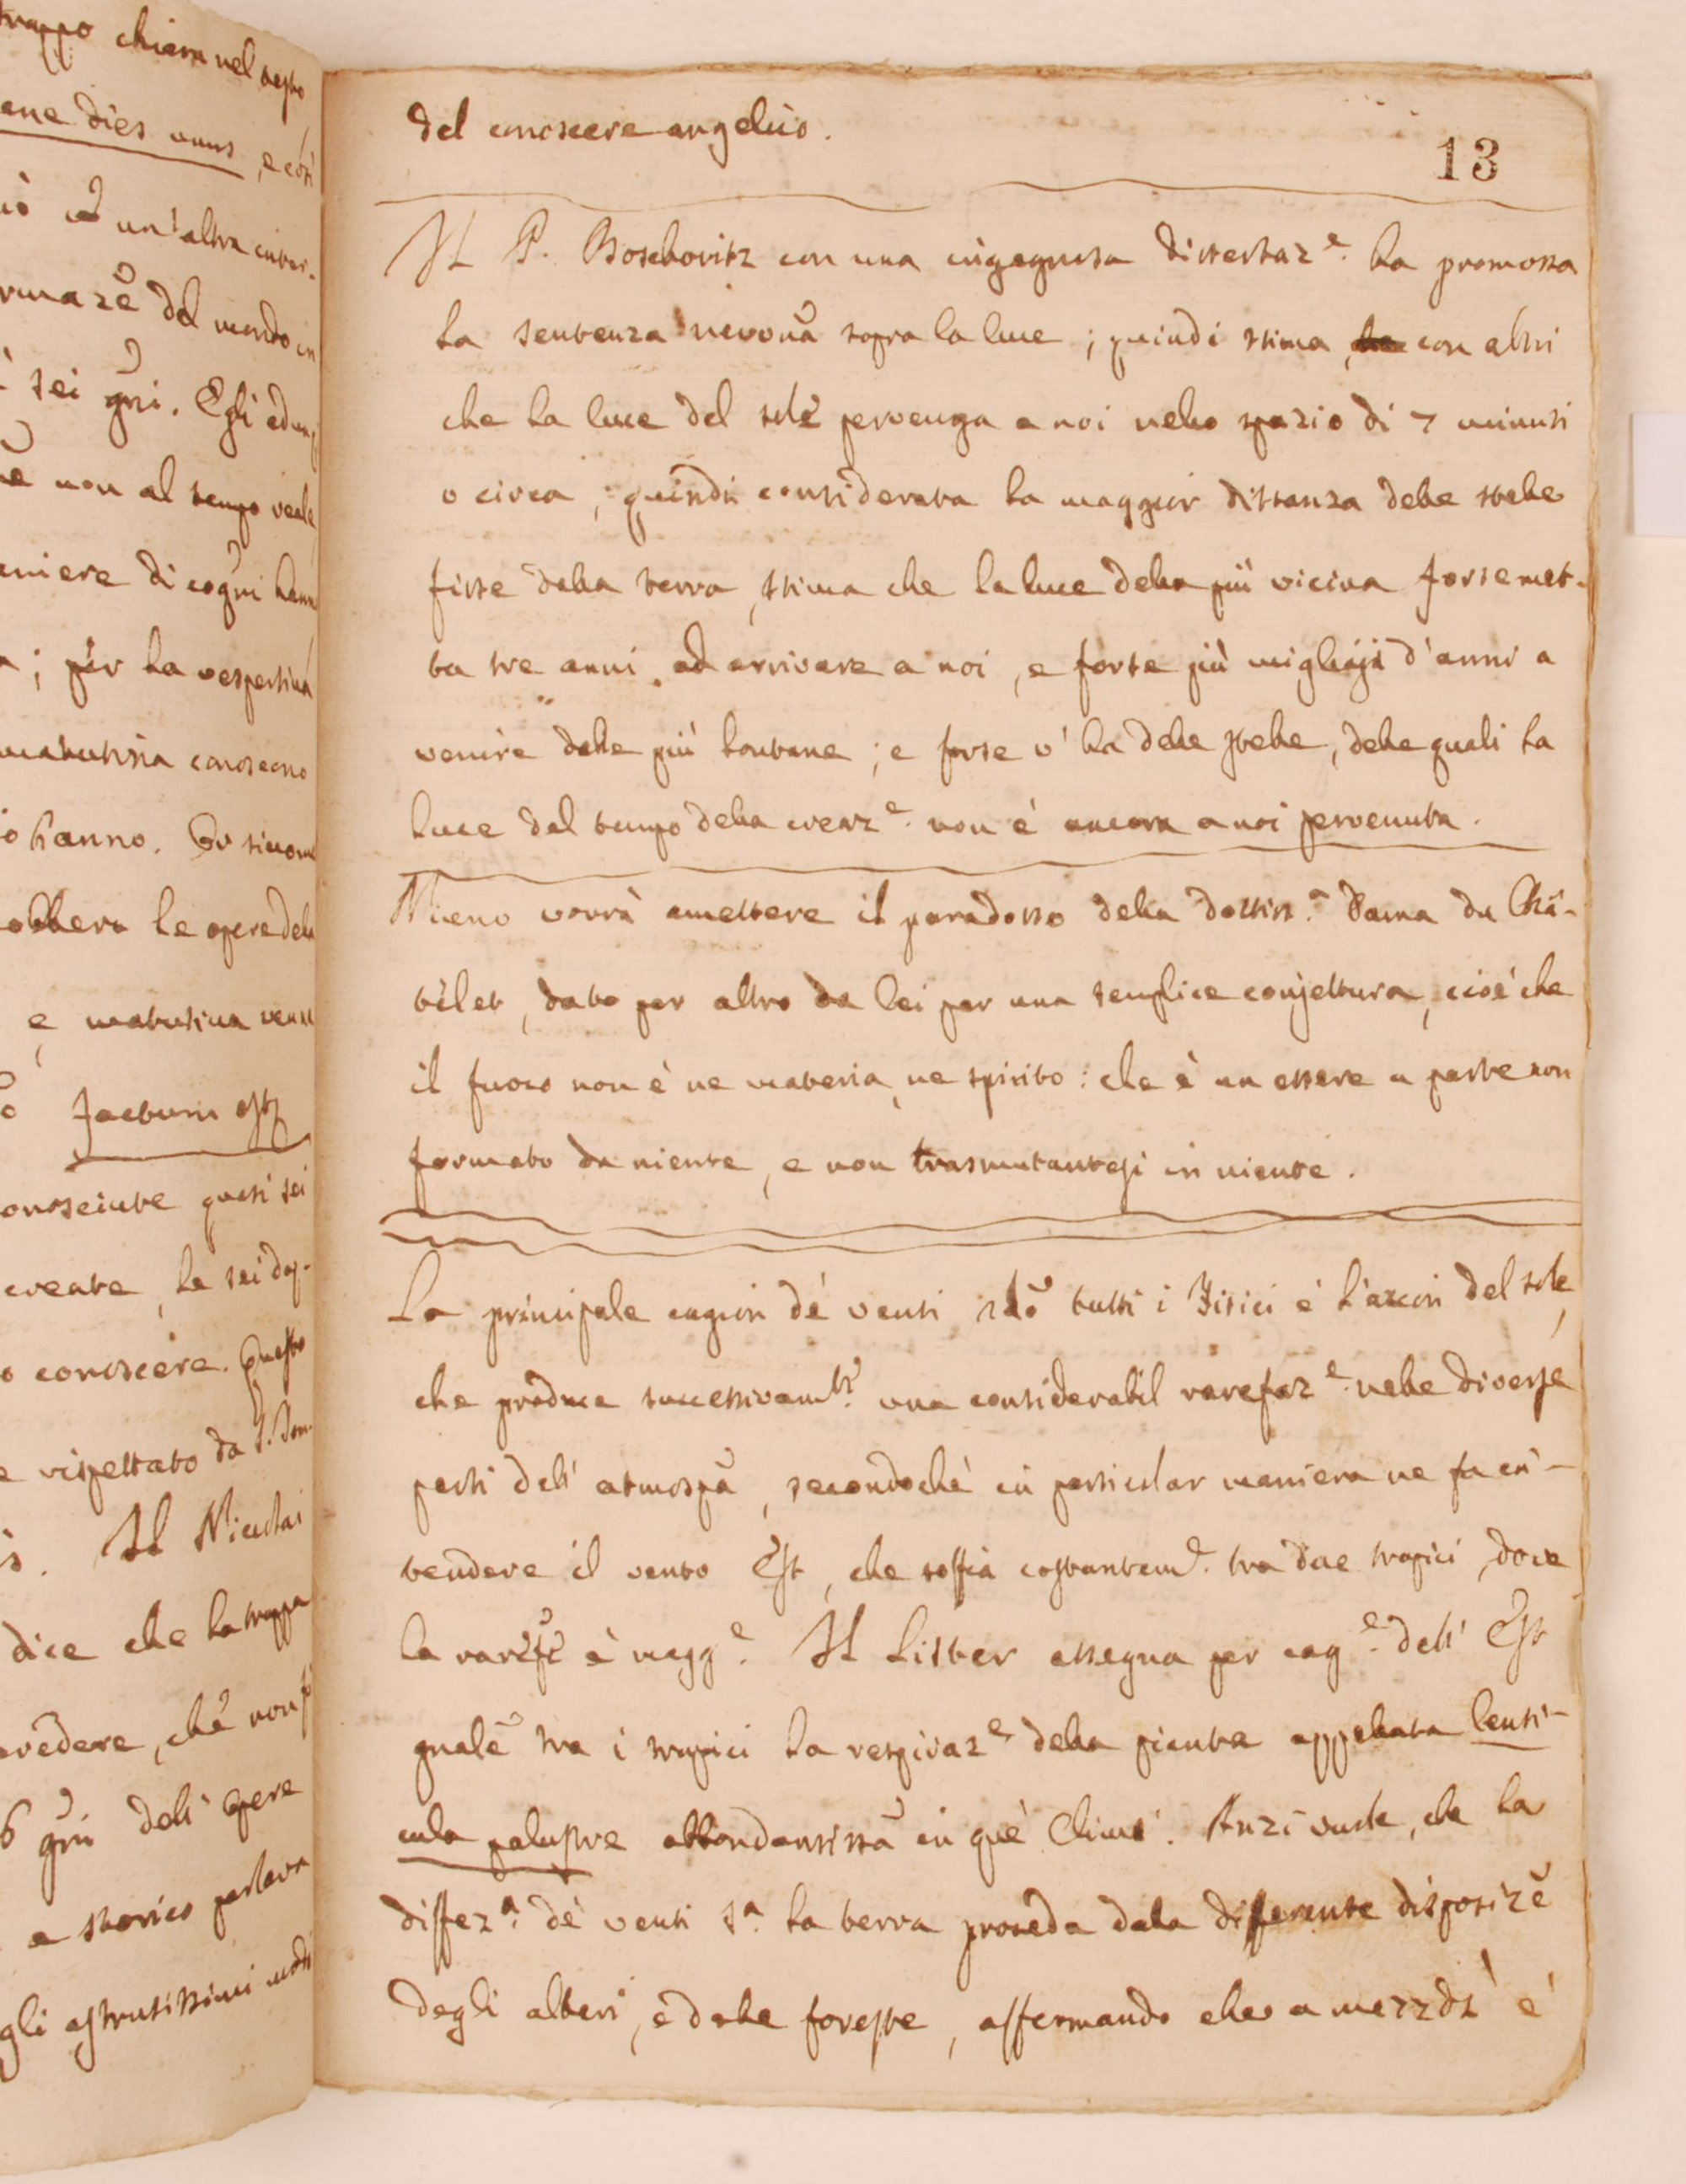 trappo chiara nel sesto
ene dies unus, e così
iò un'altra inter-
rmazẽ del mondo in
sei gñi. Egli
non al tempo reale
aniere di cogñi hann
a; per la vespertina
matutina conoscono
o hanno.
obbero le opere dela
e matutina
factum est
onosciute questi sei
create, le sei
o conoscere. Questo
e rispettato da S.
Il Nicolai
dice che la troppa
vedere, chè non
6 gñi dell' opere
a storico parlava
gli astrusissimi modi
del conoscere angelico.
13
Il P. Boschovitz con una ingegnosa dissertaz.e ha promossa
la sentenza neuoñã sopra la luce; quindi stima, con altri
che la luce del sole pervenga a noi nello spazio di 7 minuti
o circa, quindi considerata la maggior distanza delle stelle
fisse dalla terra, stima che la luce della più vicina forse met-
ta tre anni ad arrivare a noi, e forse più migliaja d'anni a
venire dalle più lontane; e forse v'ha delle stelle, delle quali la
luce dal tempo della creaz.e non è ancora a noi pervenuta.
Niuno vorrà amettere il paradosso della dottiss.a Dama du Châ-
telet, dato per altro da lei per una semplice conjettura, cioè che
il fuoco non è ne materia, ne spirito: che è un essere a parte non
formato da niente, e non trasmutantesi in niente.
La principale cagion dè venti sdõ tutti i Fisici è l'azion del sole,
che produce successivam.te una considerabil rarefaz.e nelle diverse
parti dell' atmosfã, secondochè in particolar maniera ne fa in-
tendere il vento Est, che soffia costantem.e tra due tropici, dove
la raref̃e è magg.e Il Lister assegna per cag.e dell' Est
gnalẽ tra i tropici la respiraz.e della pianta appellata lenti-
cula palustre abbondantissã in què Climi. Anzi vuole, che la
differ.a dè venti s.a la terra proceda dala differente disposizẽ
degli alberi, e delle foreste, affermando che a mezzdì è